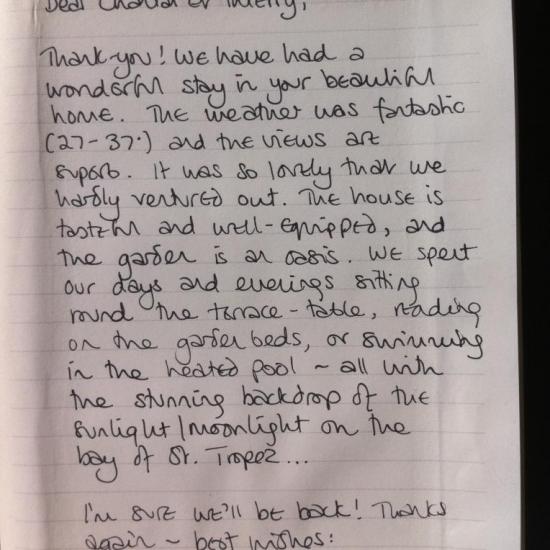 Dear Chantal et Thierry,
Thank-you! We have had a
wonderful stay in your beautiful
home. The weather was fantastic
(27-37°) and the views are
superb. It was so lovely that we
hardly ventured out. The house is
tasteful and well-equipped, and
the garden is an oasis. We spent
our days and evenings sitting
round the terrace-table, reading
on the garden beds, or swimming
in the heated pool ~ all with
the stunning backdrop of the
sunlight/moonlight on the
bay of St. Tropez...
I'm sure we'll be back! Thanks
again ~ best wishes: